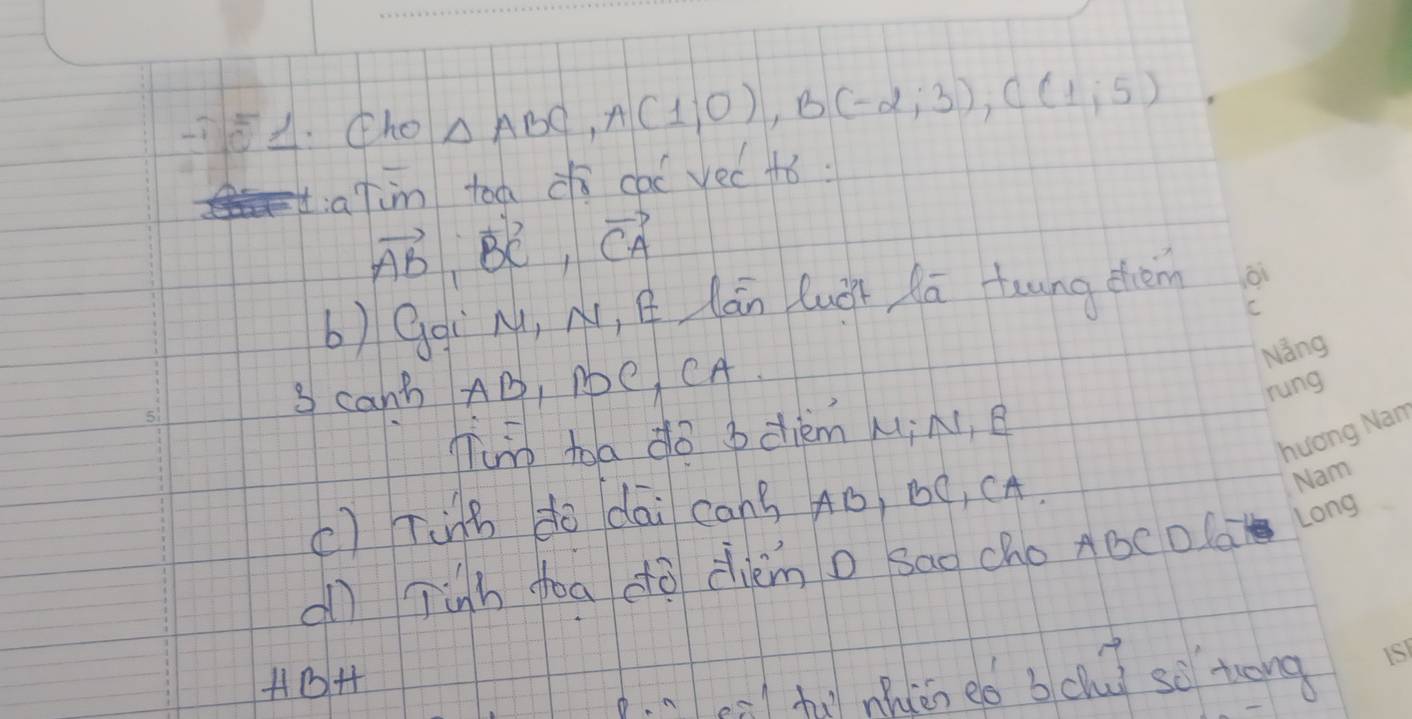 1. Cho Δ ABC, A(1;0), B(-2;3), C(1;5)
a Tìm toạ độ các véc tơ:
AB, BC, CA
b) Gọi M, N, E lần lượt là trung điểm
3 cạnh AB, BC, CA.
Tìm tọa độ 3 điểm M, N, E
c) Tính độ dài cạnh AB, BC, CA.
d) Tính tọa độ điểm D sao cho ABCD là
HBH
tự nhiên có 3 chữ số trong
ội
C
Nẵng
rung
hương Nam
Nam
Long